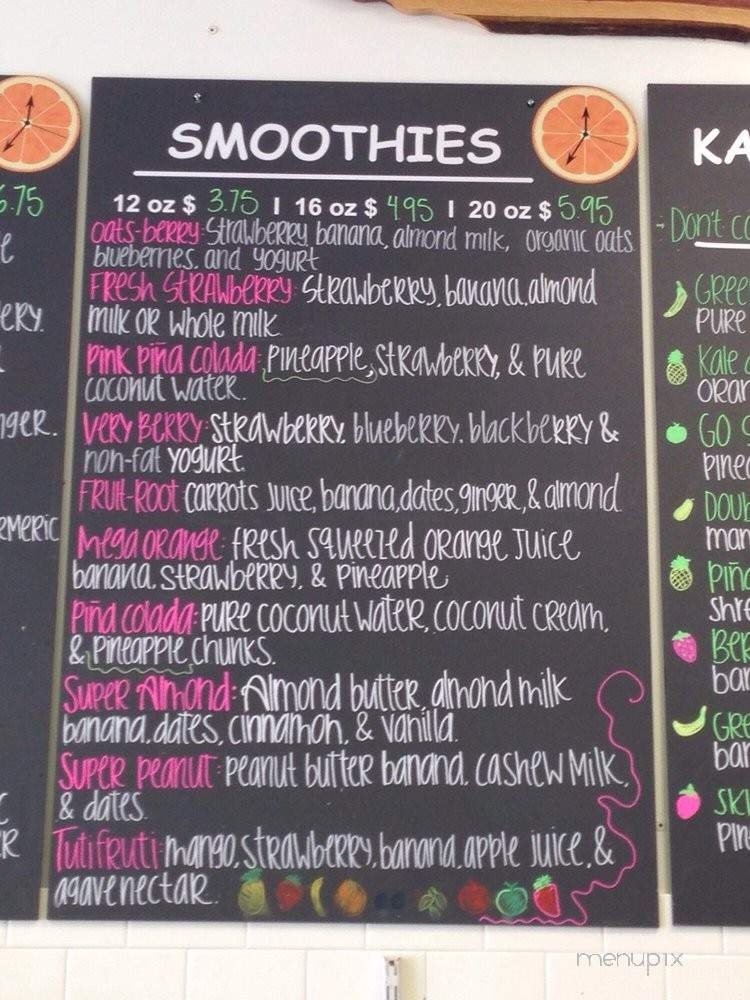 SMOOTHIES
12 oz $ 3.75 | 16 oz $ 4.95 | 20 oz $ 5.95
oats-berry: Strawberry, banana, almond milk, organic oats
blueberries, and yogurt
FRESH STRAWberry: STRAWberry, banana, almond
milk OR Whole milk.
Pink piña colada: pineapple, STRAWberry, & pure
coconut water.
Very Berry: strawberry, blueberry, blackberry &
non-fat yogurt.
FRUIT-ROOT carrots juice, banana, dates, ginger, & almond.
Mega orange: fresh squeezed orange juice
banana, strawberry, & pineapple.
Piña colada: pure coconut water, coconut cream,
& Pineapple chunks.
Super Almond: Almond butter, almond milk
banana, dates, cinnamon, & vanilla.
Super peanut: peanut butter banana, cashew Milk,
& dates.
Tutifruti: mango, strawberry, banana, apple juice, &
agave nectar.
6.75
KA
Don't co
GREE
PURE
Kale
ORAN
GO
Pinea
Doub
man
Piña
Shre
BER
ban
GRE
ban
SKI
Pin
menupix